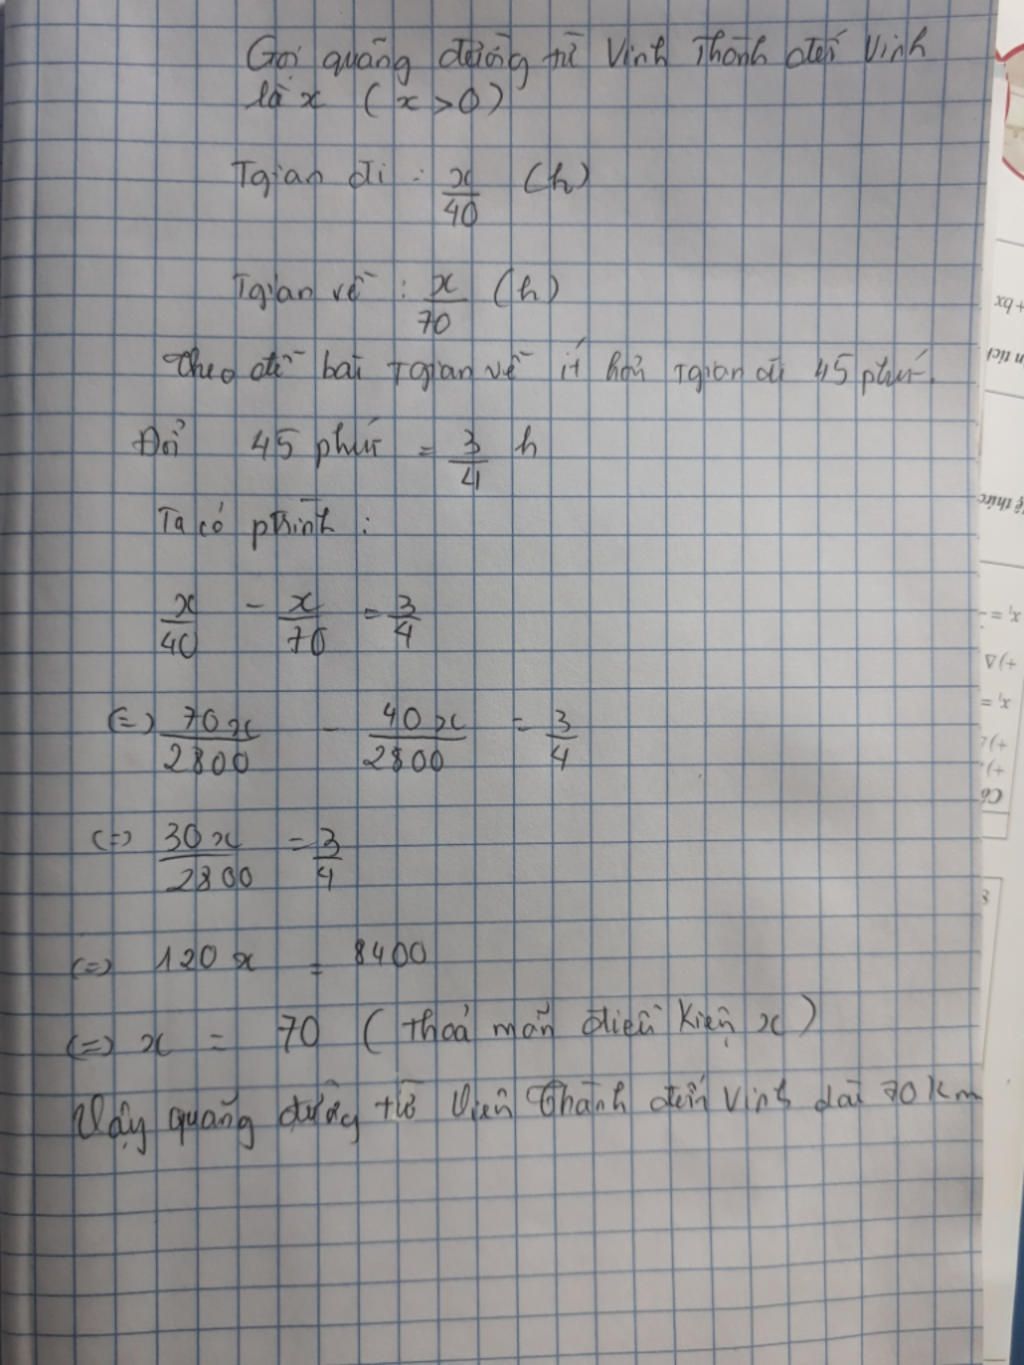 Gọi quãng đường từ Vinh Thành đến Vinh
là x ( x > 0 )
Tgian đi : x/40 (h)
Tgian về : x/70 (h)
Theo đề bài Tgian về ít hơn Tgian đi 45 phút.
Đổi 45 phút = 3/4 h
Ta có ptrình :
x/40 - x/70 = 3/4
(=) 70x/2800 - 40x/2800 = 3/4
(=) 30x/2800 = 3/4
(=) 120x = 8400
(=) x = 70 ( thoả mãn điều kiện x )
Vậy quãng đường từ Viên Thành đến Vinh dài 70 km
+ bx
n tích
ệ thức
x₁ =
+) Δ
x₁ =
+)
+)
Có